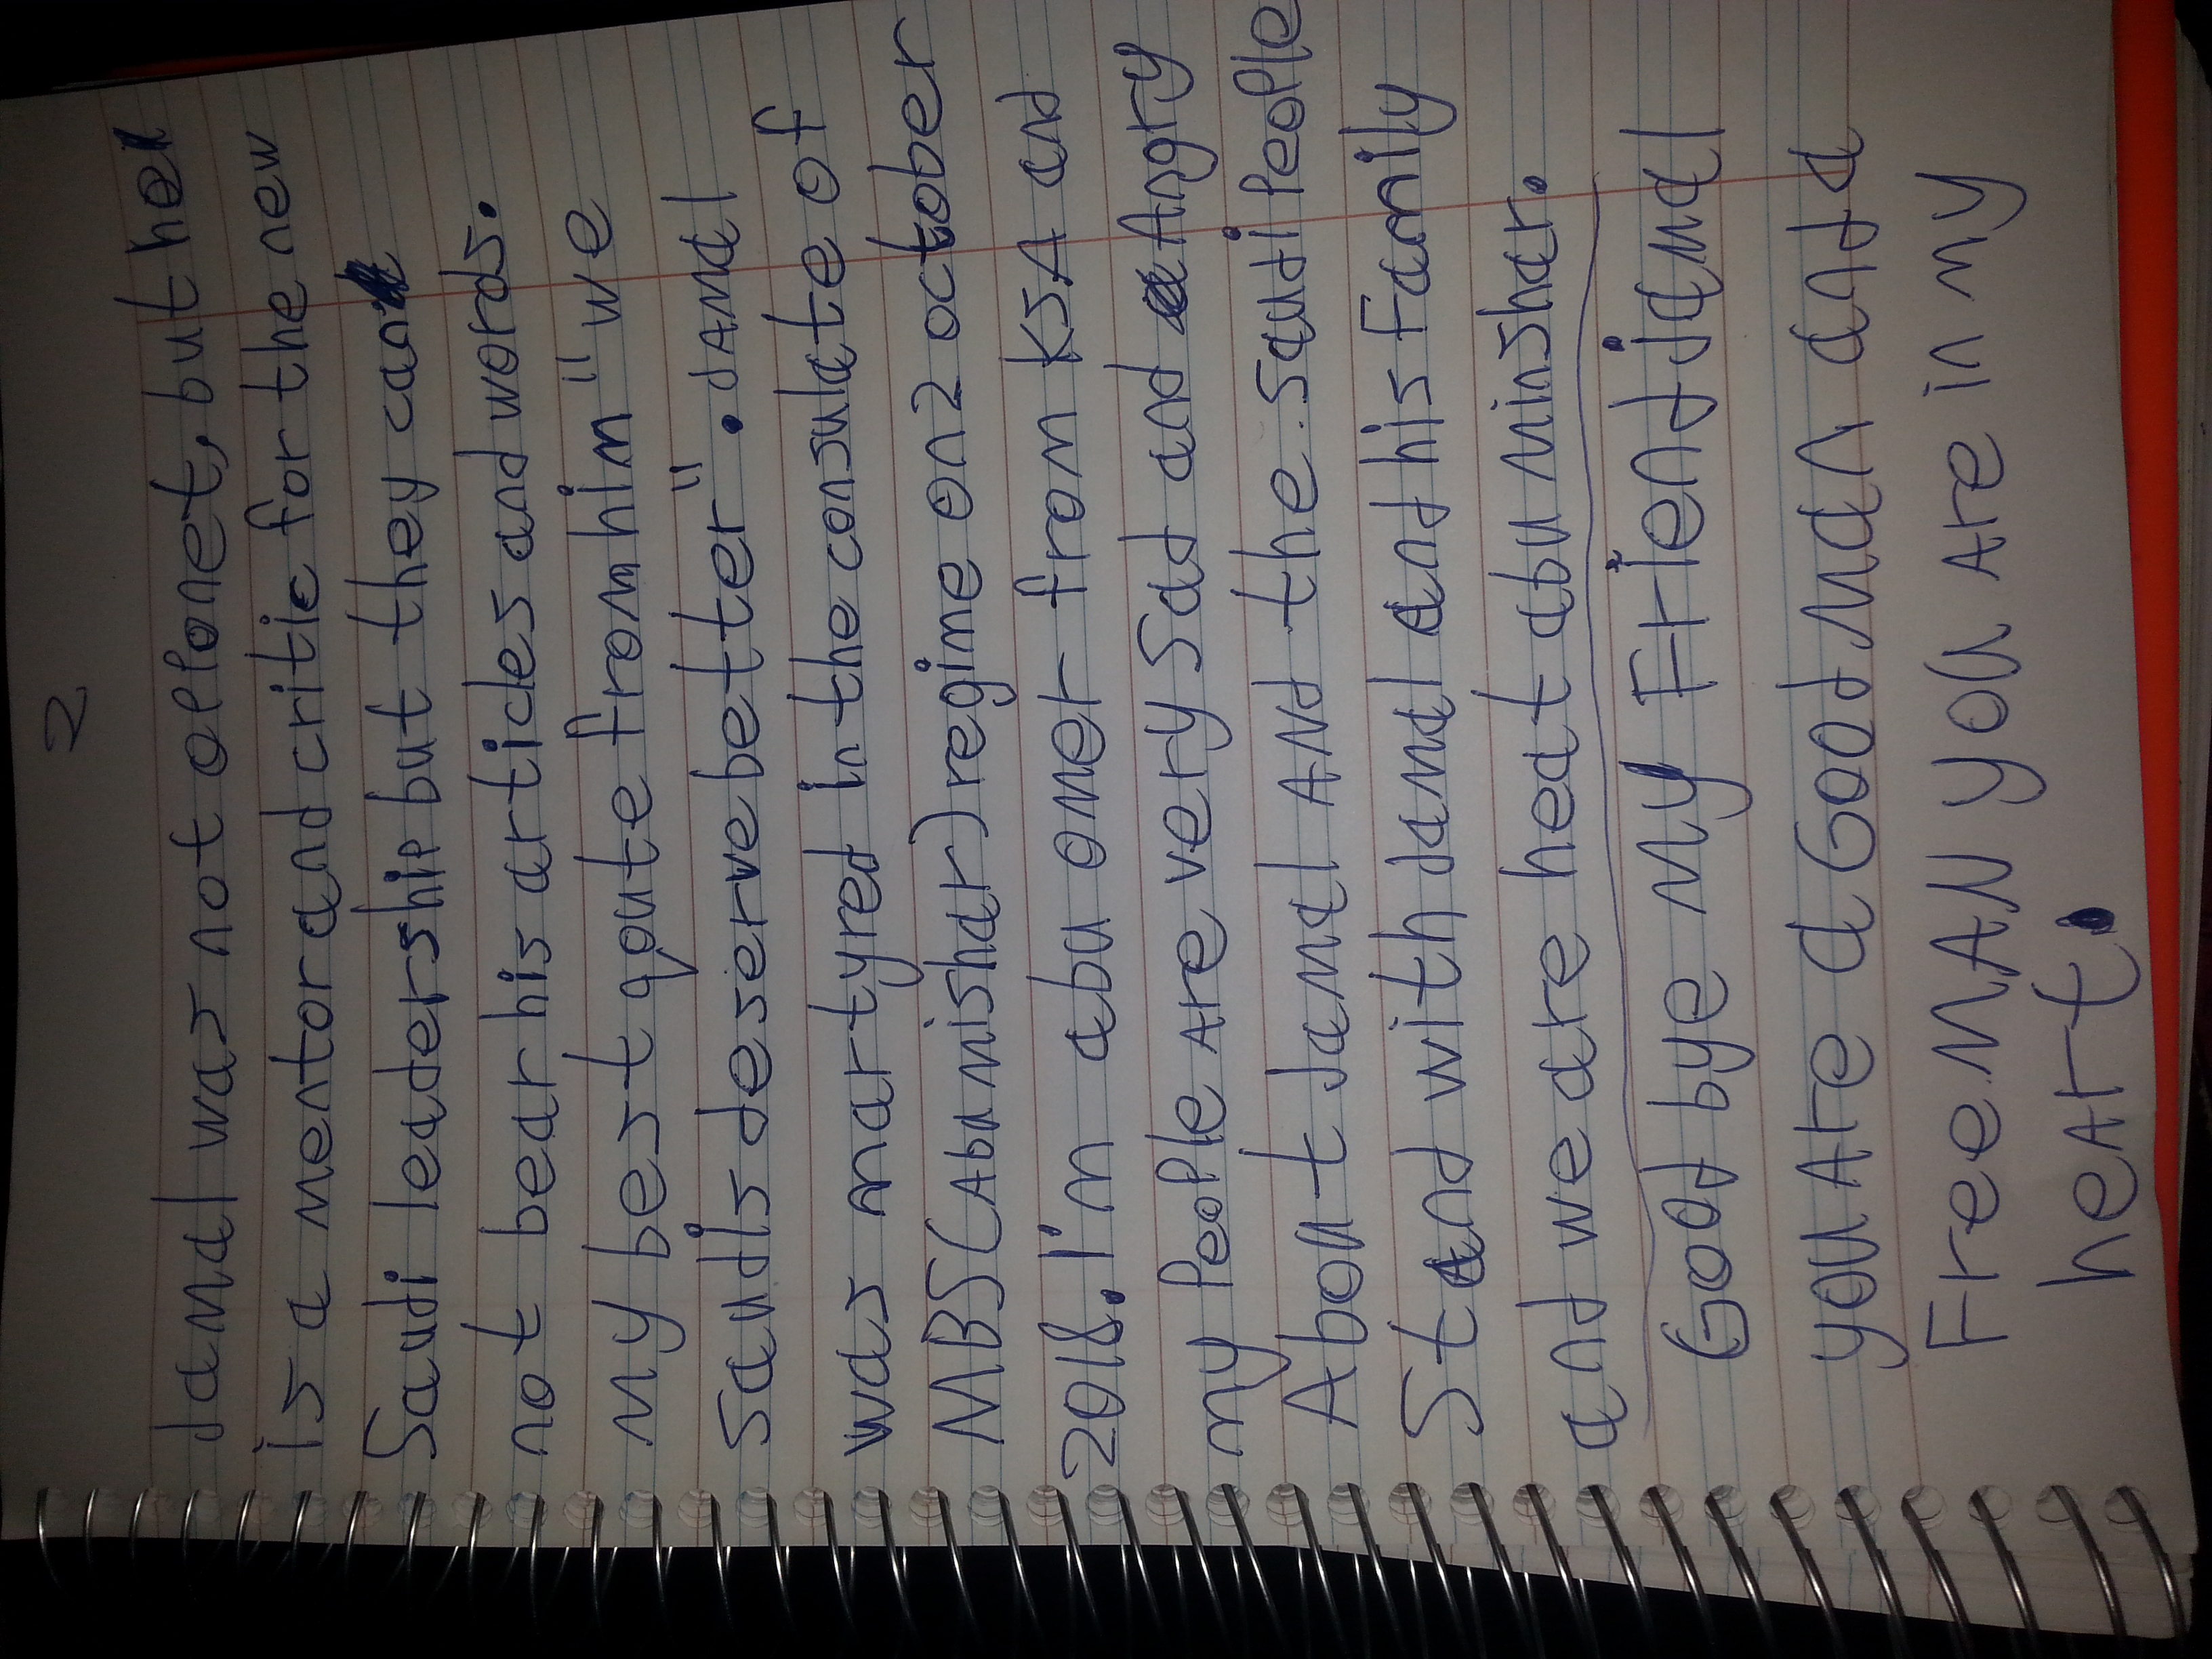 2
Jamal was not opponet, but he
is a mentor and critic for the new
Saudi leadership but they can
not bear his articles and words.
my best qoute from him "we
saudis deserve better". JAMal
was martyred in the consulate of
MBS (Abu mishar) regime on 2 october
2018. I'm abu omer from KSA and
my People Are very sad and Angry
About Jamal ANd the saudi People
Stand with Jamal and his Family
and we are heat abu minshar.
Good bye My Friend jamal
you Are a Good Man and a
Free MAN you Are in my
heArt.